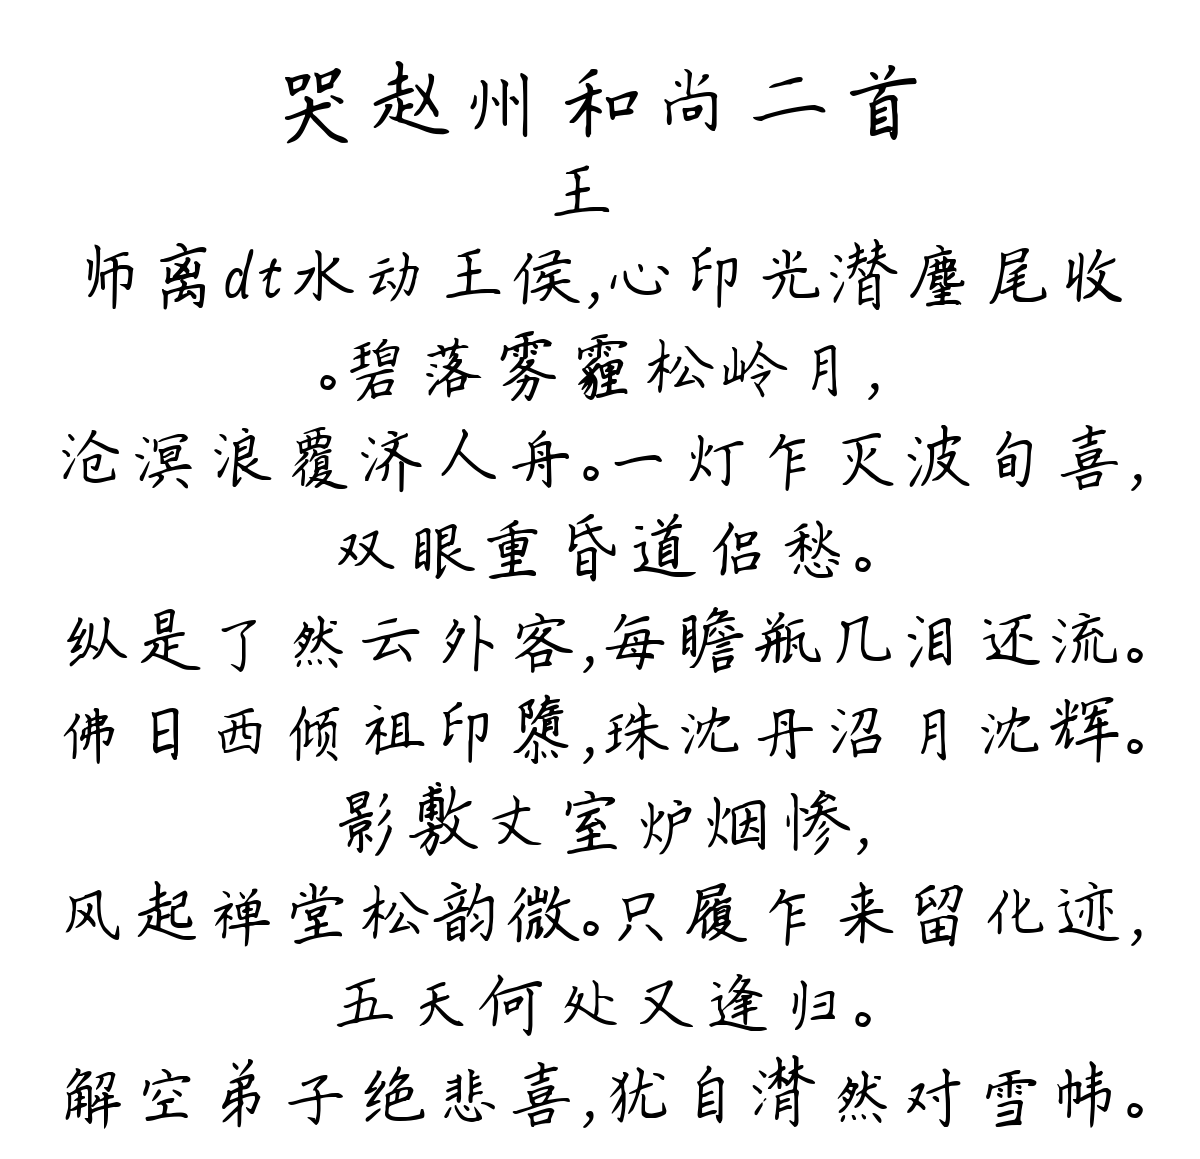 哭赵州和尚二首
王
师离dt水动王侯,心印光潜麈尾收
。碧落雾霾松岭月,
沧溟浪覆济人舟。一灯乍灭波旬喜,
双眼重昏道侣愁。
纵是了然云外客,每瞻瓶几泪还流。
佛日西倾祖印隳,珠沈丹沼月沈辉。
影敷丈室炉烟惨,
风起禅堂松韵微。只履乍来留化迹,
五天何处又逢归。
解空弟子绝悲喜,犹自潸然对雪帏。